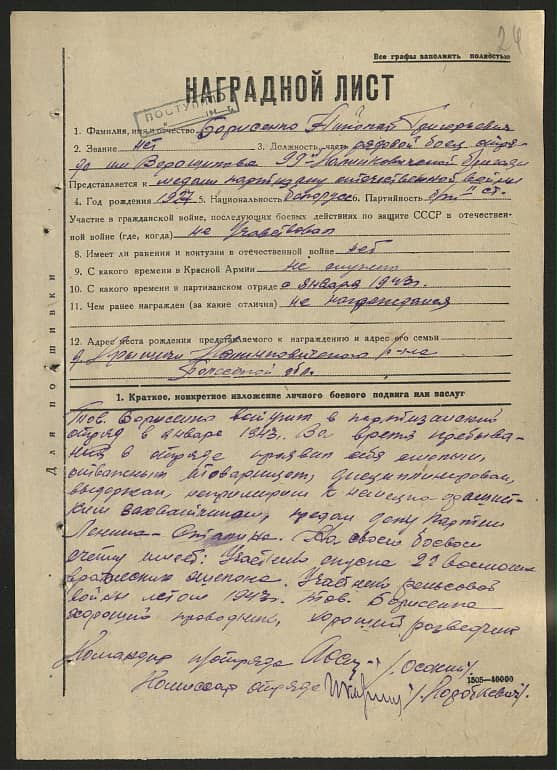 24
Все графы заполнять полностью
НАГРАДНОЙ ЛИСТ
ПОСТУПИЛО
1. Фамилия, имя и отчество Борисенко Николай Григорьевич
2. Звание нет 3. Должность, часть рядовой боец отря-
да им Ворошилова 99й Калинковичской бригады
Представляется к медали партизану отечественной войны
II ст.
4. Год рождения 1927 5. Национальность белорусс 6. Партийность б/п
Участие в гражданской войне, последующих боевых действиях по защите СССР в отечествен-
ной войне (где, когда) не участвовал
8. Имеет ли ранения и контузии в отечественной войне нет
9. С какого времени в Красной Армии не служит
10. С какого времени в партизанском отряде с января 1943г.
11. Чем ранее награжден (за какие отличия) не награждался
12. Адрес места рождения представляемого к награждению и адрес его семьи
д. Крынички Калинковичского р-на
Полесской обл.
Для подшивки
1. Краткое, конкретное изложение личного боевого подвига или заслуг
Тов. Борисенко вступил в партизанский
отряд в январе 1943г. За время пребыва-
ния в отряде проявил себя смелым,
отважным товарищем, дисциплинирован,
выдержан, непримирим к немецко фашист-
ким захватчикам, предан делу партии
Ленина-Сталина. На своем боевом
счету имеет: Участник спуска 2х воинских
вражеских эшелона. Участник рельсовой
войны летом 1943г. Тов. Борисенко
хороший проводник, хороший разведчик
Командир п/отряда /Осокин/.
1505-40000
Комиссар отряда